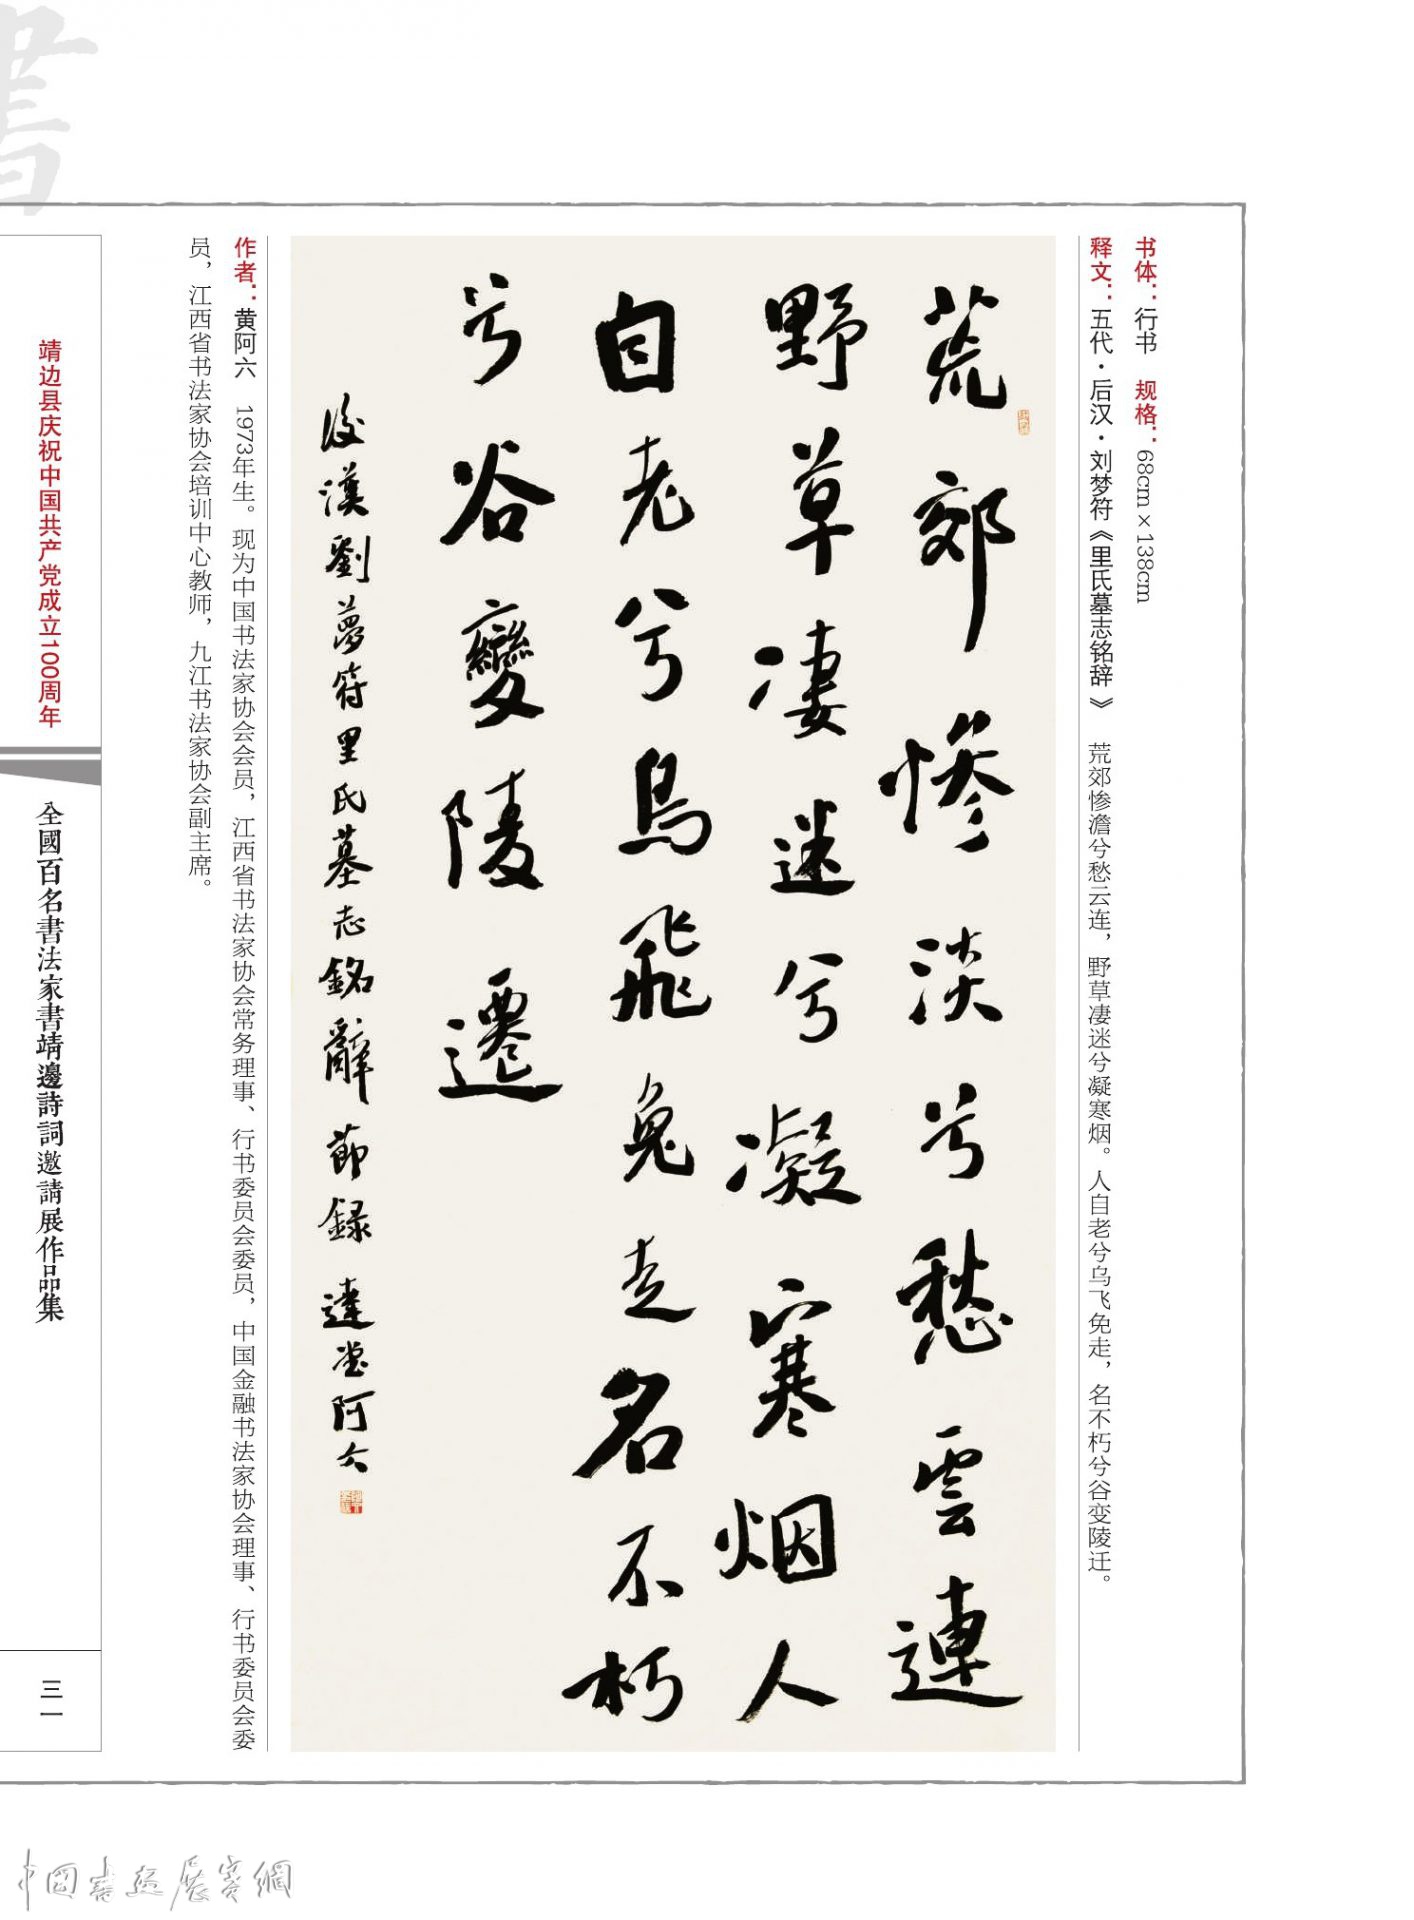 书体：行书　规格：68cm×138cm
释文：五代·后汉·刘梦符《里氏墓志铭辞》　荒郊惨澹兮愁云连，野草凄迷兮凝寒烟。人自老兮乌飞免走，名不朽兮谷变陵迁。
荒郊惨淡兮愁雲連
野草凄迷兮凝寒烟人
自老兮烏飛兔走名不朽
兮谷變陵遷
後漢劉夢符里氏墓志銘辭節録 達堂阿六
作者：黄阿六　1973年生。现为中国书法家协会会员，江西省书法家协会常务理事、行书委员会委员，中国金融书法家协会理事、行书委员会委
员，江西省书法家协会培训中心教师，九江书法家协会副主席。
靖边县庆祝中国共产党成立100周年
全國百名書法家書靖邊詩詞邀請展作品集
三一
書
中國書画展賽網